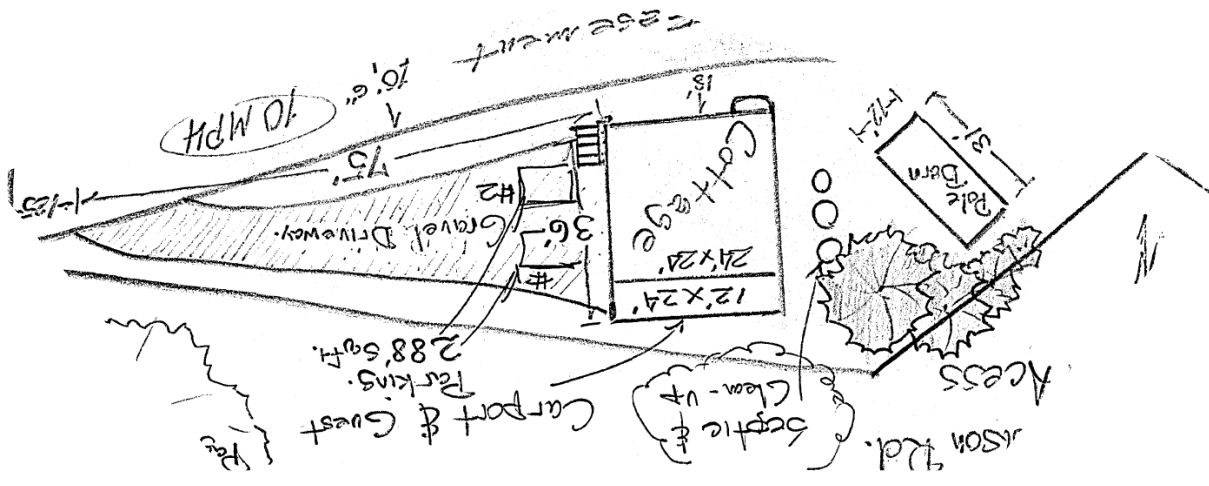 Rd.
Acess
Septic &
Clean-up
Carport & Guest
Parking.
288' Sqft.
12' x 24'
24' x 24'
Cottage
Pole
Barn
31'
12'
#
36'
#2
Gravel Driveway.
75'
125'
18'
10 MPH
10'6"
Easement